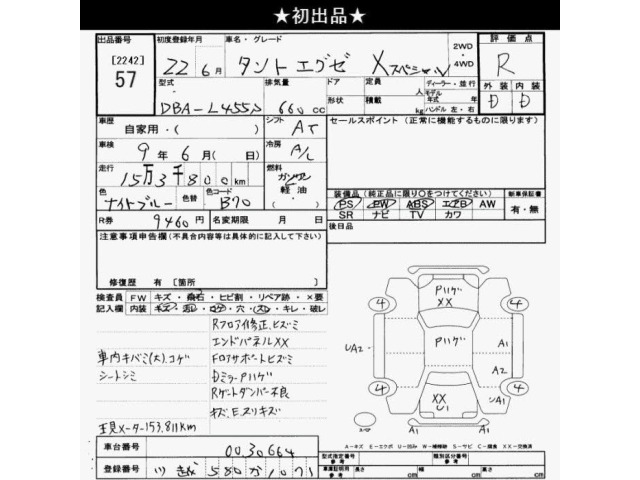 ★初出品★
出品番号 初度登録年月 車名・グレード 評価点
[2242] 57 22 年 6月 タント エグゼ Xスペシャル 2WD・4WD R
型式 排気量 ドア 定員 人 ディーラー・並行
DBA-L455S 660cc 形状 積載 kg モデル年式 年 ハンドル 左・右
外装 内装
D D
車歴 自家用・( ) シフト AT セールスポイント (正常に機能するものに限ります)
車検 9年 6月( 日) 冷房 A/C
走行 15万3千800km 燃料 ガソリン 軽油
色 ナイトブルー 色替 色コード B70
装備品(純正品に限り○をつけてください) 新車保証書
PS PW ABS エアB AW 有・無
SR ナビ TV カワ
R券 9460円 名変期限 月 日 後日品
注意事項申告欄(不具合内容等は具体的に記入して下さい)
修復歴 有[箇所 ]
検査員記入欄 FW キズ・飛石・ヒビ割・リペア跡・×要
内装 キズ・汚レ・コゲ・穴・スレ・破レ
Rフロア修正、ヒズミ
エンドパネルXX
車内キバミ(大)、コゲ Fロアサポートヒズミ
シートシミ DミラーPハゲ
Rゲートダンパー不良
キズ、エクリキズ
現メーター153,811km
Pハゲ
XX
4 4
UA2 Pハゲ A1
A2
4 XX 4
U1 UA1
A1 A1
A-キズ E-エクボ U-凹み W-補修跡 S-サビ C-腐食 XX-交換済
車台番号 0030664
登録番号 川越 580 か 1071
型式指定番号 参考 類別区分番号 参考
車庫証明用 参考 長さ cm 幅 cm 高さ cm